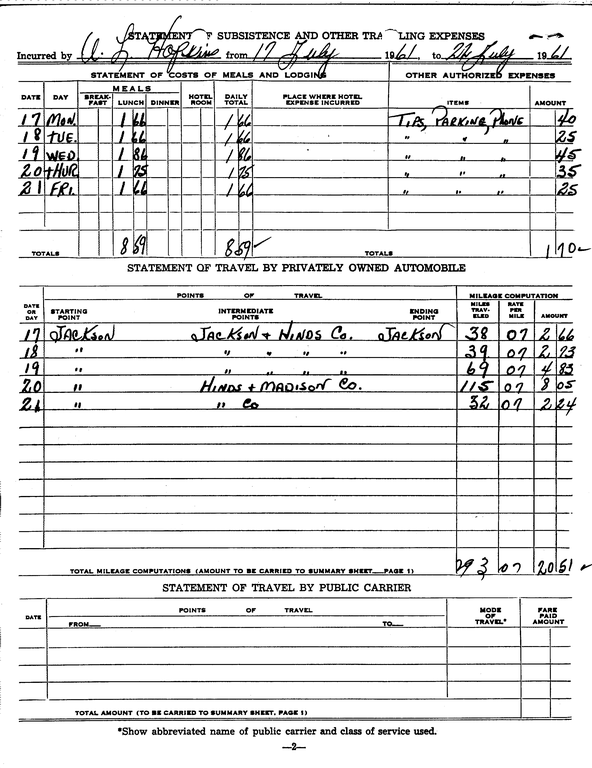 STATEMENT OF SUBSISTENCE AND OTHER TRA LING EXPENSES
Incurred by A. L. Hopkins from 17 July 1961, to 22 July 1961
STATEMENT OF COSTS OF MEALS AND LODGING OTHER AUTHORIZED EXPENSES
DATE DAY MEALS BREAK-FAST LUNCH DINNER HOTEL ROOM DAILY TOTAL PLACE WHERE HOTEL EXPENSE INCURRED ITEMS AMOUNT
17 MON. 1 66 1 66 TIPS, PARKING, PHONE 40
18 TUE. 1 66 1 66 " " " 25
19 WED. 1 86 1 86 " " " 45
20 tHUR. 1 75 1 75 " " " 35
21 FRI. 1 66 1 66 " " " 25
TOTALS 8 59 8 59 ✓ TOTALS 1 70 ✓
STATEMENT OF TRAVEL BY PRIVATELY OWNED AUTOMOBILE
POINTS OF TRAVEL MILEAGE COMPUTATION
DATE OR DAY STARTING POINT INTERMEDIATE POINTS ENDING POINT MILES TRAV-ELED RATE PER MILE AMOUNT
17 JACKSON JACKSON & HINDS Co. JACKSON 38 07 2 66
18 " " " " " 39 07 2 73
19 " " " " " 69 07 4 83
20 " HINDS & MADISON Co. 115 07 8 05
21 " " Co 32 07 2 24
TOTAL MILEAGE COMPUTATIONS (AMOUNT TO BE CARRIED TO SUMMARY SHEET__PAGE 1) 293 07 20 51 ✓
STATEMENT OF TRAVEL BY PUBLIC CARRIER
DATE POINTS OF TRAVEL MODE OF TRAVEL* FARE PAID AMOUNT
FROM__ TO__
TOTAL AMOUNT (TO BE CARRIED TO SUMMARY SHEET, PAGE 1)
*Show abbreviated name of public carrier and class of service used.
—2—